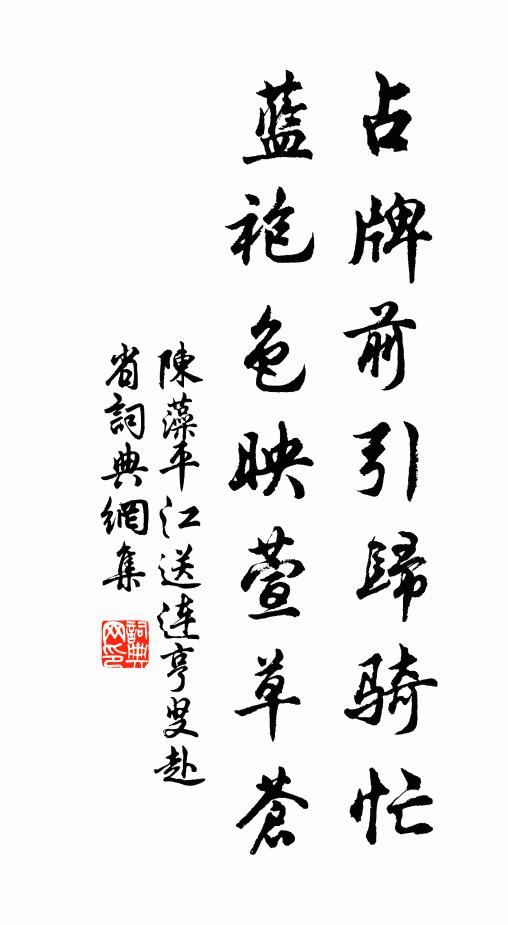 占牌前引歸騎忙
藍袍色映萱草蒼
陳藻平江送連亨叟赴
省詞典網集
詞典
网印